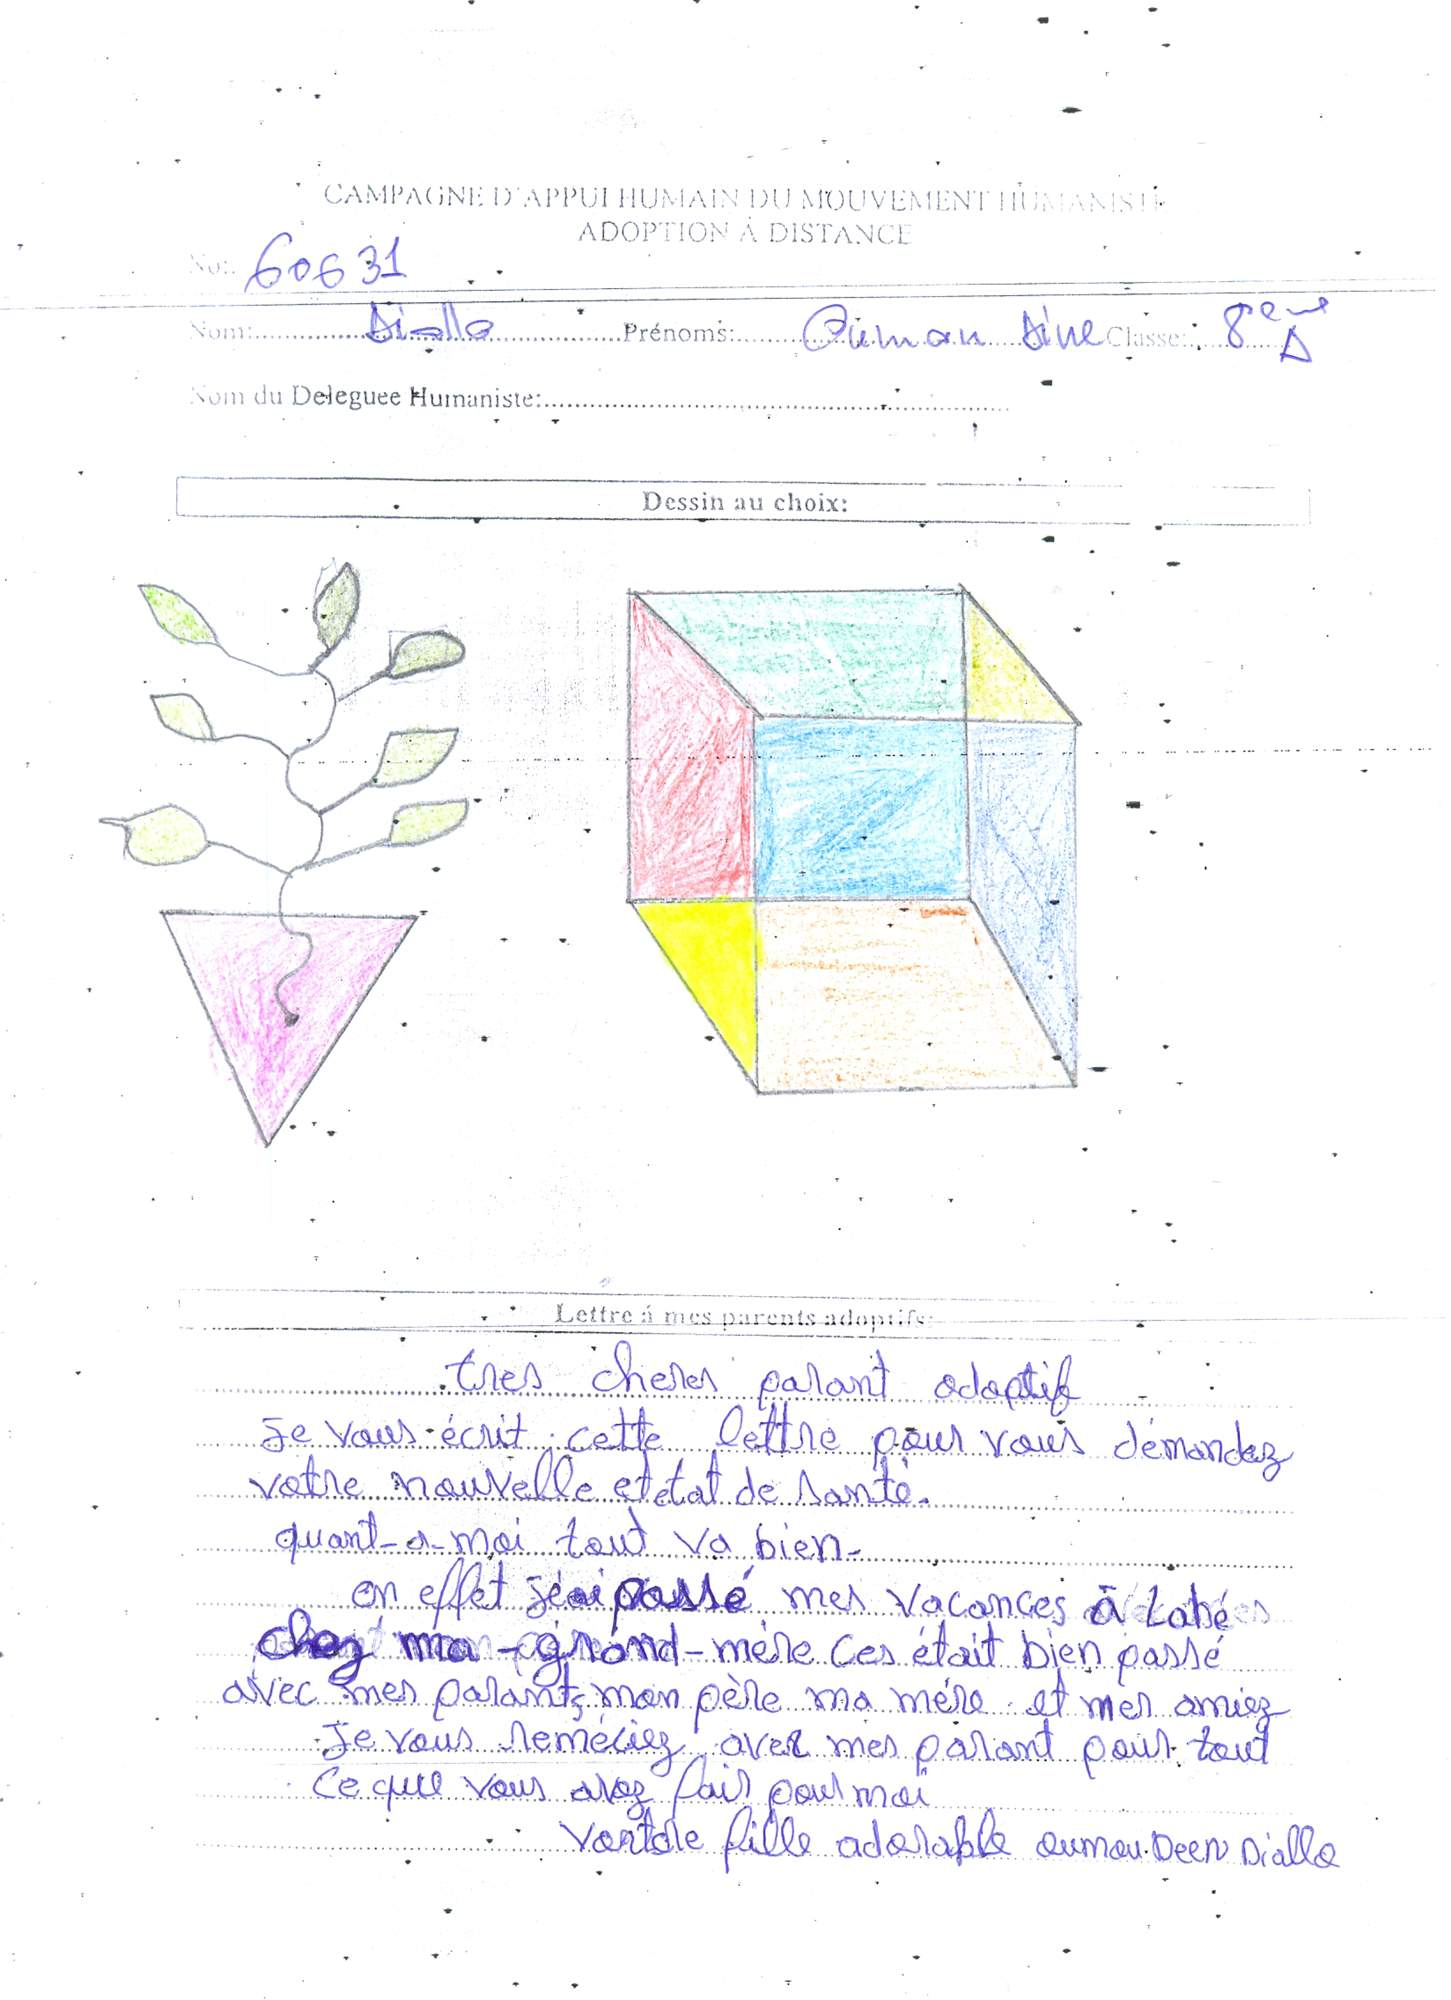 CAMPAGNE D'APPUI HUMAIN DU MOUVEMENT HUMANISTE
ADOPTION À DISTANCE
No: 60631
Nom: Diallo Prénoms: Oumou Dine Classe: 8eme A
Nom du Deleguee Humaniste:
Dessin au choix:
Lettre á mes parents adoptifs:
tres cheres parant adoptif
Je vous écrit cette lettre pour vous démandez
votre nouvelle et etat de santé.
quant-a-moi tout va bien-
en effet j'ai passé mes vacances à Labé
chez ma-grand-mére Ces était bien passé
avec mes parants, mon père ma mére et mes amiez
Je vous reméciez avec mes parant pour tout
ce que vous avez fair pour moi
fille adorable oumou Deen Diallo